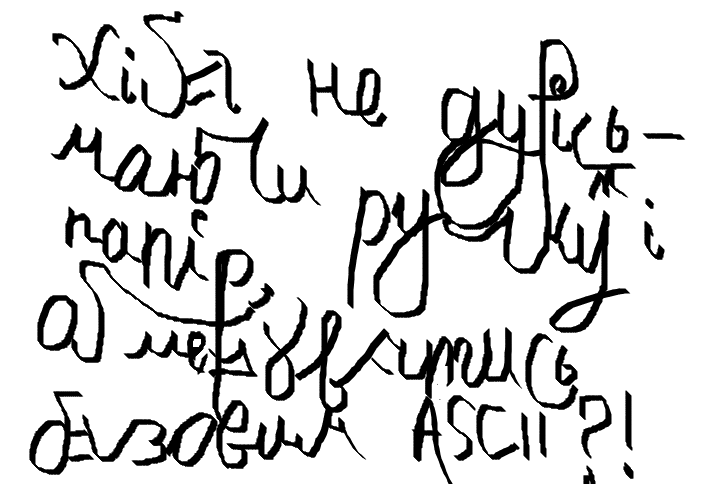 Хіба не дурість —
маючи ручку і
папір,
обмежуватись
базовим ASCII?!